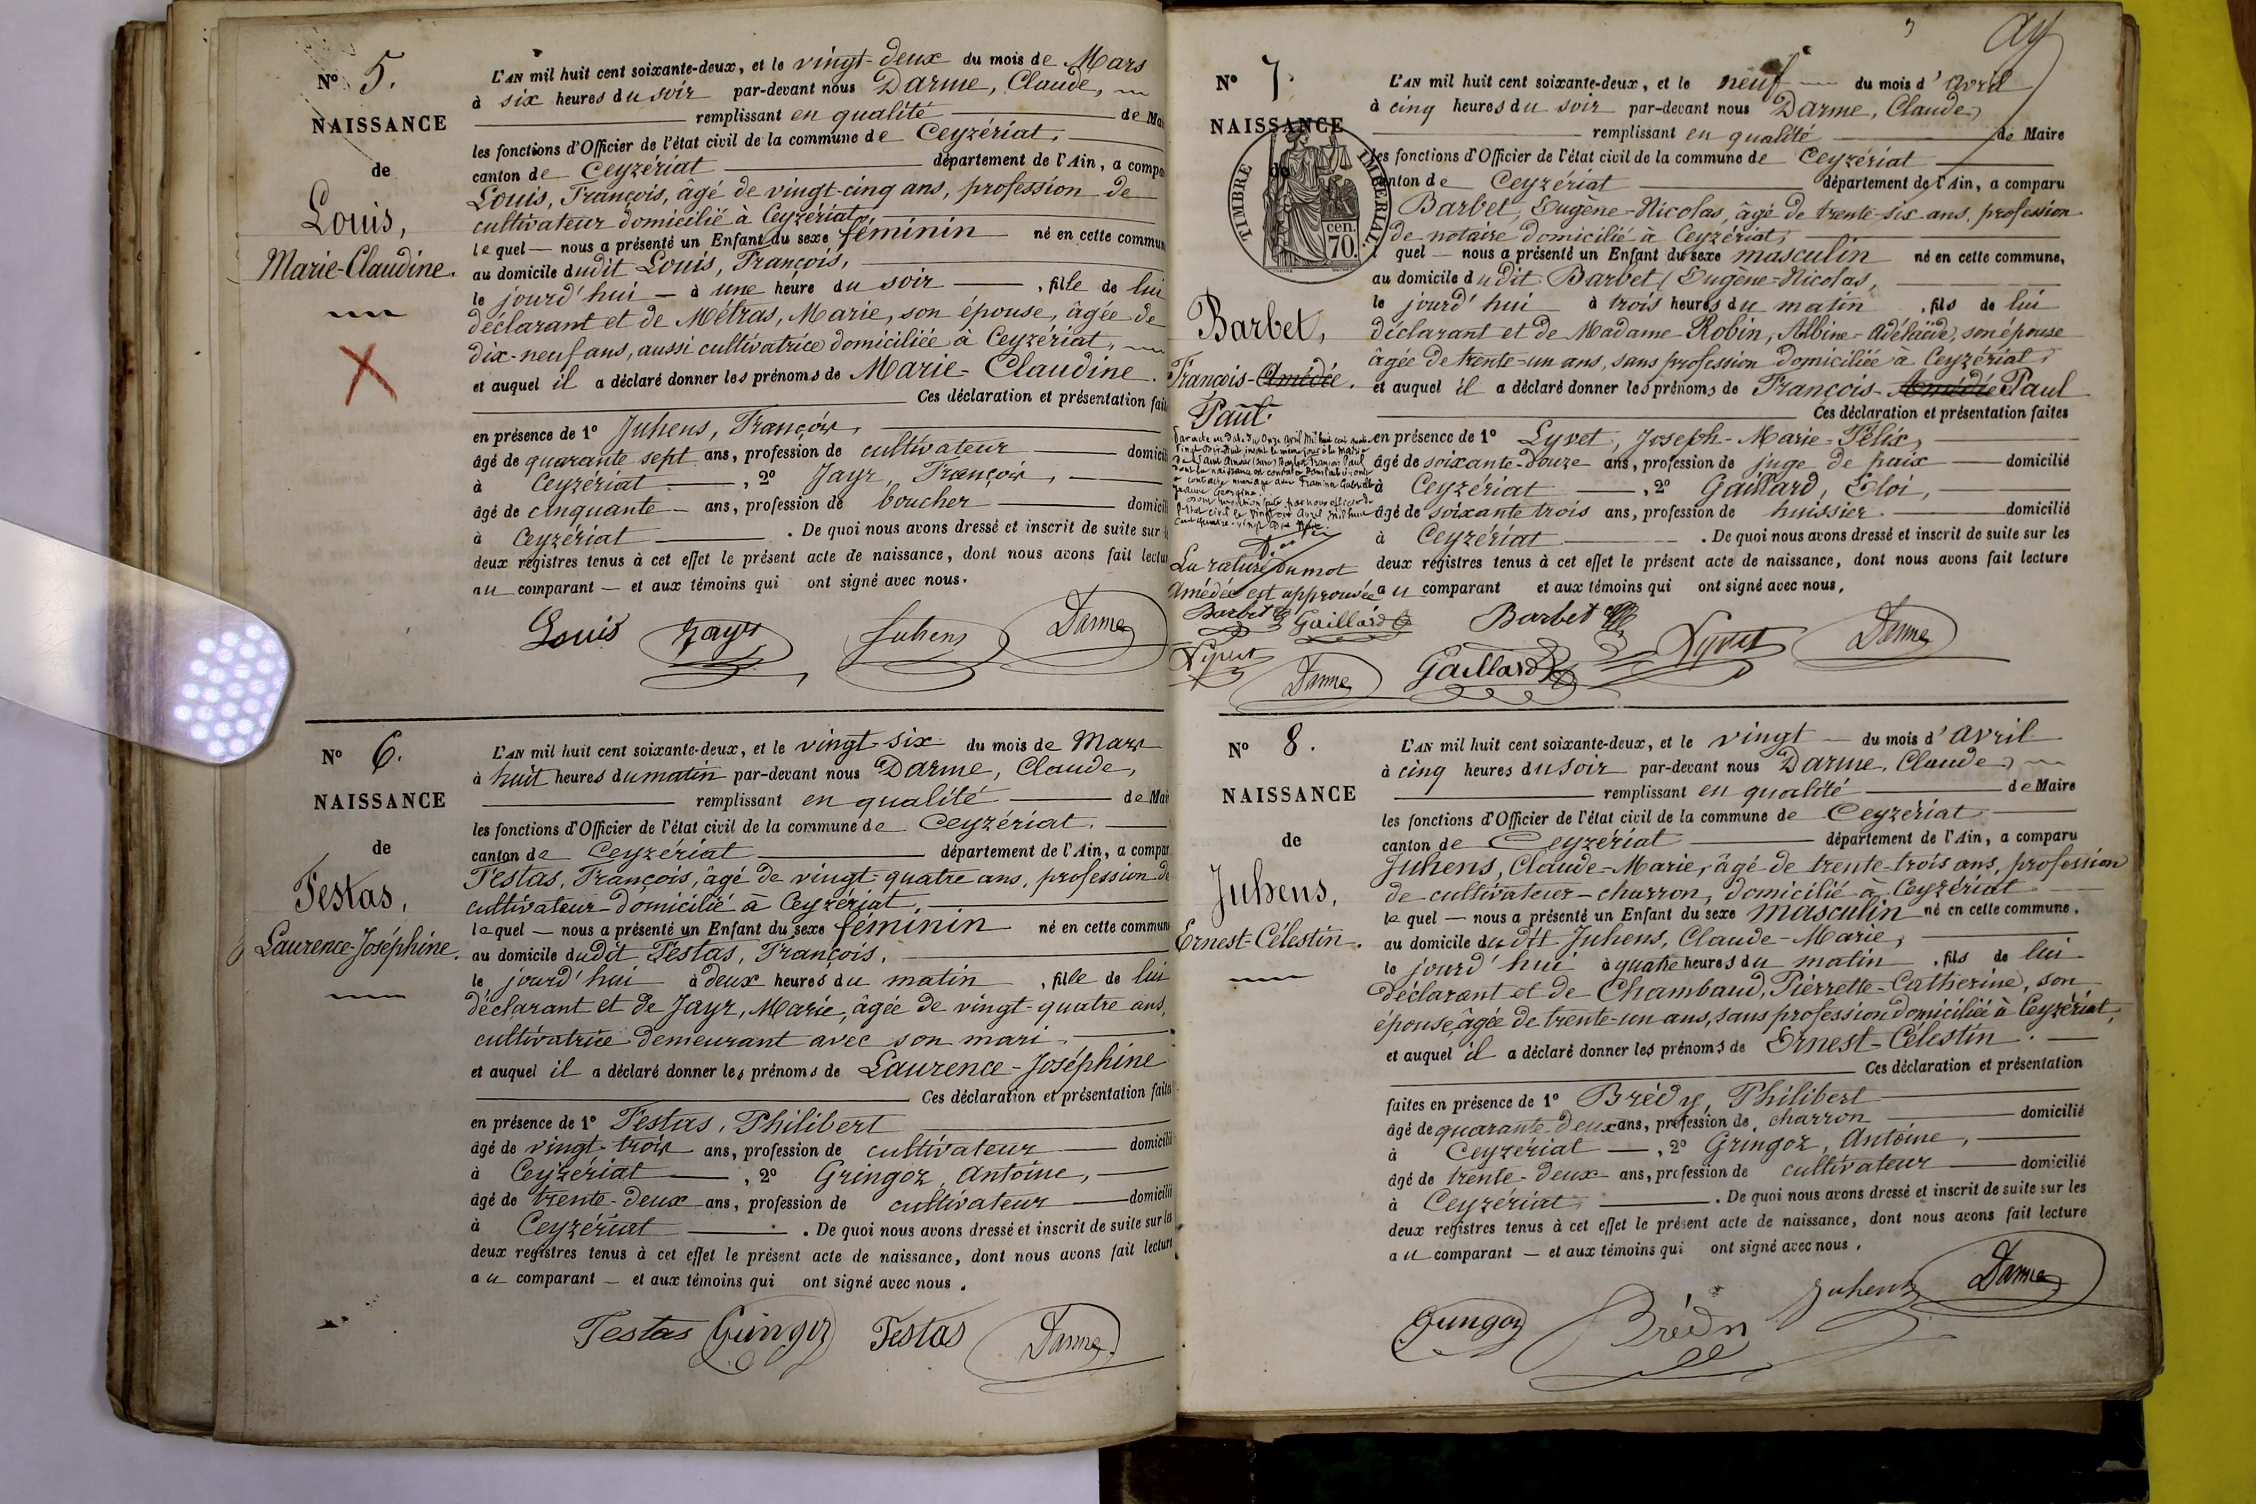 N° 5.
NAISSANCE
de
Louis,
Marie-Claudine.
L'AN mil huit cent soixante-deux, et le vingt-deux du mois de Mars
à six heures du soir par-devant nous Darme, Claude,
remplissant en qualité de Mai
les fonctions d'Officier de l'état civil de la commune de Ceyzériat,
canton de Ceyzériat département de l'Ain, a compa
Louis, François, âgé de vingt-cinq ans, profession de
cultivateur domicilié à Ceyzériat,
lequel nous a présenté un Enfant du sexe féminin né en cette commun
au domicile dudit Louis, François,
le jourd'hui à une heure du soir, fille de lui
déclarant et de Métras, Marie, son épouse, âgée de
dix-neuf ans, aussi cultivatrice domiciliée à Ceyzériat,
et auquel il a déclaré donner les prénoms de Marie-Claudine.
Ces déclaration et présentation fait
en présence de 1° Juhens, François,
âgé de quarante sept ans, profession de cultivateur domicili
à Ceyzériat, 2° Jayr, François,
âgé de cinquante ans, profession de boucher domicili
à Ceyzériat. De quoi nous avons dressé et inscrit de suite sur l
deux registres tenus à cet effet le présent acte de naissance, dont nous avons fait lectur
au comparant et aux témoins qui ont signé avec nous.
Louis Jayr Juhens Darme
N° 6.
NAISSANCE
de
Festas,
Laurence-Joséphine.
L'AN mil huit cent soixante-deux, et le vingt-six du mois de Mars
à huit heures du matin par-devant nous Darme, Claude,
remplissant en qualité de Mai
les fonctions d'Officier de l'état civil de la commune de Ceyzériat.
canton de Ceyzériat département de l'Ain, a compar
Festas, François, âgé de vingt-quatre ans, profession de
cultivateur domicilié à Ceyzériat,
lequel nous a présenté un Enfant du sexe féminin né en cette commun
au domicile dudit Festas, François,
le jourd'hui à deux heures du matin, fille de lui
déclarant et de Jayr, Marie, âgée de vingt-quatre ans,
cultivatrice demeurant avec son mari.
et auquel il a déclaré donner les prénoms de Laurence-Joséphine
Ces déclaration et présentation faites
en présence de 1° Festas, Philibert
âgé de vingt-trois ans, profession de cultivateur domicilié
à Ceyzériat, 2° Gringoz, Antoine,
âgé de trente-deux ans, profession de cultivateur domicilié
à Ceyzériat. De quoi nous avons dressé et inscrit de suite sur les
deux registres tenus à cet effet le présent acte de naissance, dont nous avons fait lecture
au comparant et aux témoins qui ont signé avec nous.
Festas Gringoz Festas Darme
N° 7.
NAISSANCE
de
TIMBRE IMPÉRIAL.
70 cen.
Barbet,
François-Amédée.
Paul.
La rature du mot
Amédée est approuvée
Barbet Gaillard
Lyvet
Darme
L'AN mil huit cent soixante-deux, et le neuf du mois d'avril
à cinq heures du soir par-devant nous Darme, Claude,
remplissant en qualité de Maire
les fonctions d'Officier de l'état civil de la commune de Ceyzériat
canton de Ceyzériat département de l'Ain, a comparu
Barbet, Eugène-Nicolas, âgé de trente-six ans, profession
de notaire domicilié à Ceyzériat,
quel nous a présenté un Enfant du sexe masculin né en cette commune,
au domicile dudit Barbet, Eugène-Nicolas,
le jourd'hui à trois heures du matin, fils de lui
déclarant et de Madame Robin, Albine-Adélaïde, son épouse
âgée de trente-un ans, sans profession domiciliée à Ceyzériat,
et auquel il a déclaré donner les prénoms de François-Amédée Paul
Ces déclaration et présentation faites
en présence de 1° Lyvet, Joseph-Marie-Félix,
âgé de soixante-douze ans, profession de juge de paix domicilié
à Ceyzériat, 2° Gaillard, Eloi,
âgé de soixante trois ans, profession de huissier domicilié
à Ceyzériat. De quoi nous avons dressé et inscrit de suite sur les
deux registres tenus à cet effet le présent acte de naissance, dont nous avons fait lecture
au comparant et aux témoins qui ont signé avec nous.
Barbet Lyvet Darme
Gaillard
N° 8.
NAISSANCE
de
Juhens,
Ernest-Célestin.
L'AN mil huit cent soixante-deux, et le vingt du mois d'avril
à cinq heures du soir par-devant nous Darme, Claude,
remplissant en qualité de Maire
les fonctions d'Officier de l'état civil de la commune de Ceyzériat
canton de Ceyzériat département de l'Ain, a comparu
Juhens, Claude-Marie, âgé de trente-trois ans, profession
de cultivateur-charron, domicilié à Ceyzériat
lequel nous a présenté un Enfant du sexe masculin né en cette commune.
au domicile dudit Juhens, Claude-Marie,
le jourd'hui à quatre heures du matin, fils de lui
déclarant et de Chambaud, Pierrette-Catherine, son
épouse, âgée de trente-un ans, sans profession domiciliée à Ceyzériat,
et auquel il a déclaré donner les prénoms de Ernest-Célestin.
Ces déclaration et présentation
faites en présence de 1° Brédy, Philibert
âgé de quarante-deux ans, profession de charron domicilié
à Ceyzériat, 2° Gringoz, Antoine,
âgé de trente-deux ans, profession de cultivateur domicilié
à Ceyzériat. De quoi nous avons dressé et inscrit de suite sur les
deux registres tenus à cet effet le présent acte de naissance, dont nous avons fait lecture
au comparant et aux témoins qui ont signé avec nous.
Gringoz Brédy Juhens Darme